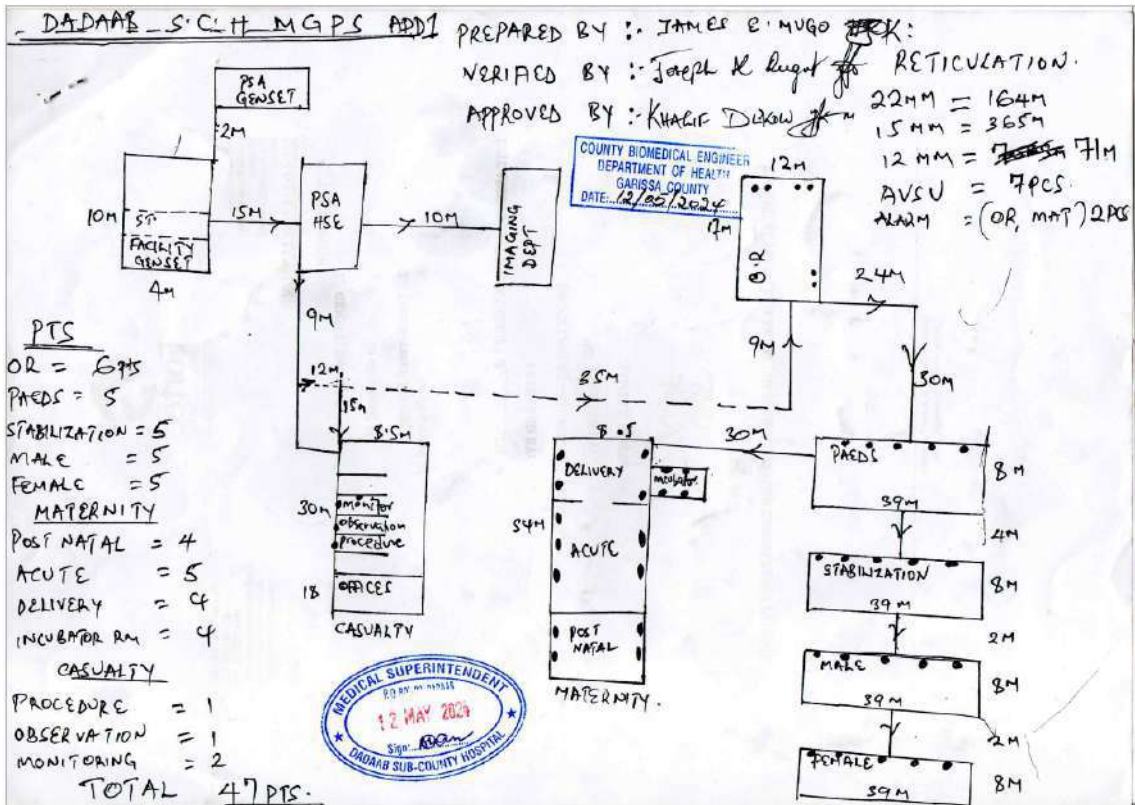 DADAAB S.C.H MGPS ADD1
PREPARED BY :- JAMES E. MUGO
VERIFIED BY :- Joseph
APPROVED BY :- KHALIF
RETICULATION.
22MM = 164M
15MM = 365M
12 MM = 71M
AVSU = 7PCS.
ALARM = (OR, MAT) 2PCS
COUNTY BIOMEDICAL ENGINEER
DEPARTMENT OF HEALTH
GARISSA COUNTY
DATE: 12/05/2024
PSA
GENSET
2M
10M
ST
FACILITY
GENSET
4M
15M
PSA
HSE
10M
IMAGING
DEPT
12M
17M
O.R
24M
9M
30M
9M
12M
35M
15M
8.5M
30M
monitor
observation
procedure
18
OFFICES
CASUALTY
8.5
30M
DELIVERY
incubator
54M
ACUTE
POST
NATAL
MATERNITY.
PAEDS
39M
8M
4M
STABILIZATION
39M
8M
2M
MALE
39M
8M
2M
FEMALE
39M
8M
PTS
OR = 6PTS
PAEDS = 5
STABILIZATION = 5
MALE = 5
FEMALE = 5
MATERNITY
POST NATAL = 4
ACUTE = 5
DELIVERY = 4
INCUBATOR RM = 4
CASUALTY
PROCEDURE = 1
OBSERVATION = 1
MONITORING = 2
TOTAL 47 PTS.
MEDICAL SUPERINTENDENT
12 MAY 2024
Sign:
DADAAB SUB-COUNTY HOSPITAL